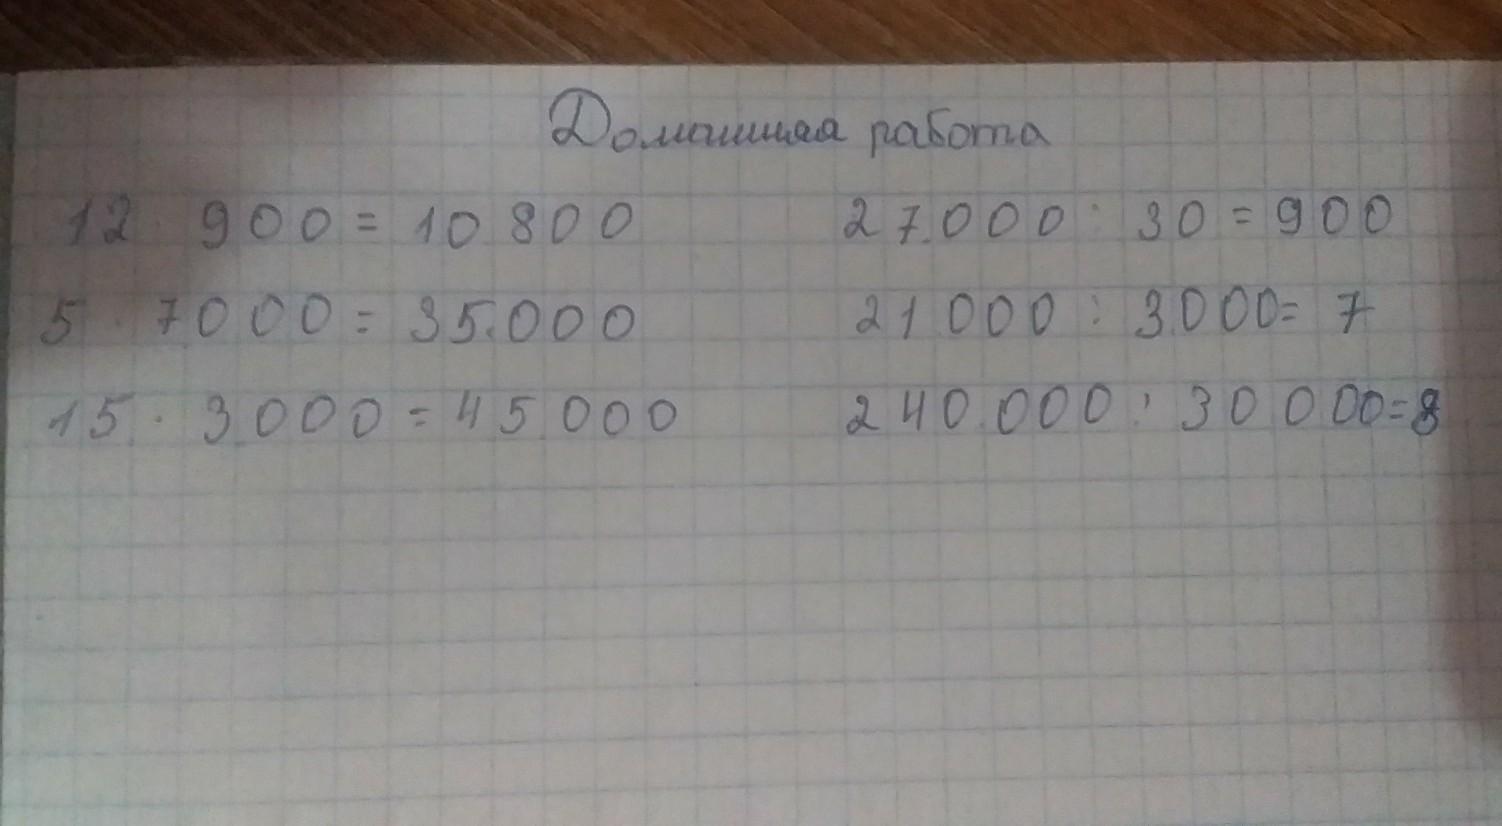 Домашняя работа
12 · 900 = 10 800 27.000 : 30 = 900
5 · 7000 = 35.000 21 000 : 3000 = 7
15 · 3000 = 45 000 240.000 : 30 000 = 8